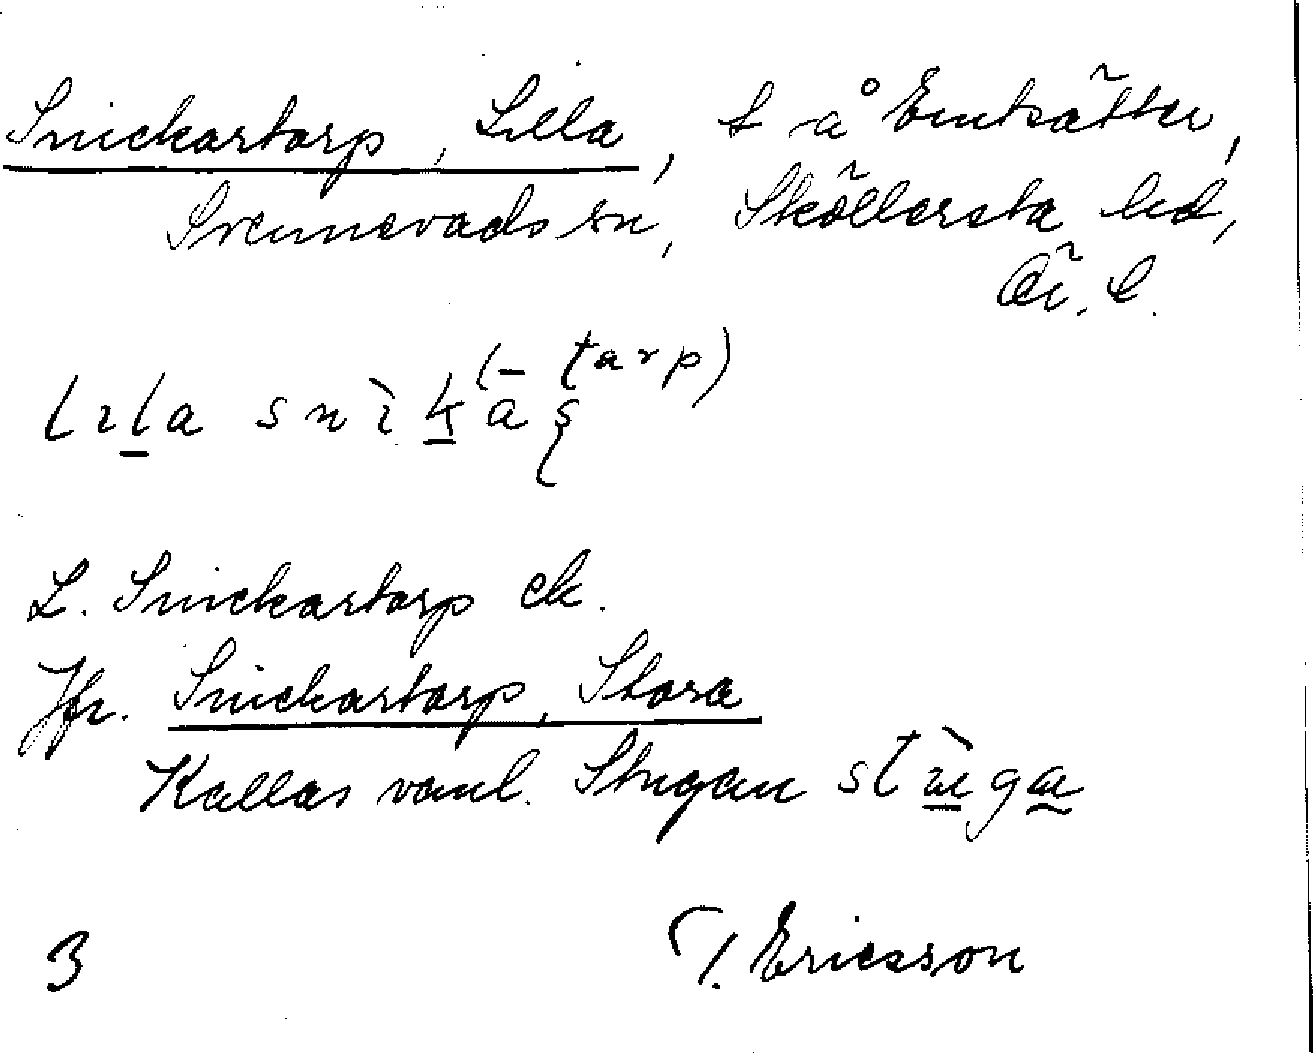 Snickartorp, Lilla, t å Emtsätter,
Svennevads sn, Sköllersta hd,
Ör. l.
lıla snìka (-tarp)
L. Snickartorp ek.
Jfr. Snickartorp, Stora
Kallas vanl. Stugan
3 T. Ericsson